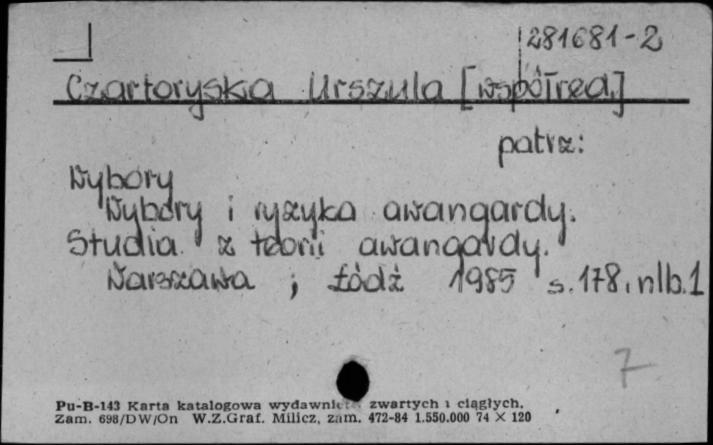 281681-2
Czartoryska Urszula [współred.]
patrz:
Wybory
Wybory i ryzyka awangardy.
Studia z teorii awangardy.
Warszawa ; Łódź 1985 s. 178, nlb. 1
7
Pu-B-143 Karta katalogowa wydawnictw zwartych i ciągłych.
Zam. 698/DW/On W.Z.Graf. Milicz, zam. 472-84 1.550.000 74 × 120